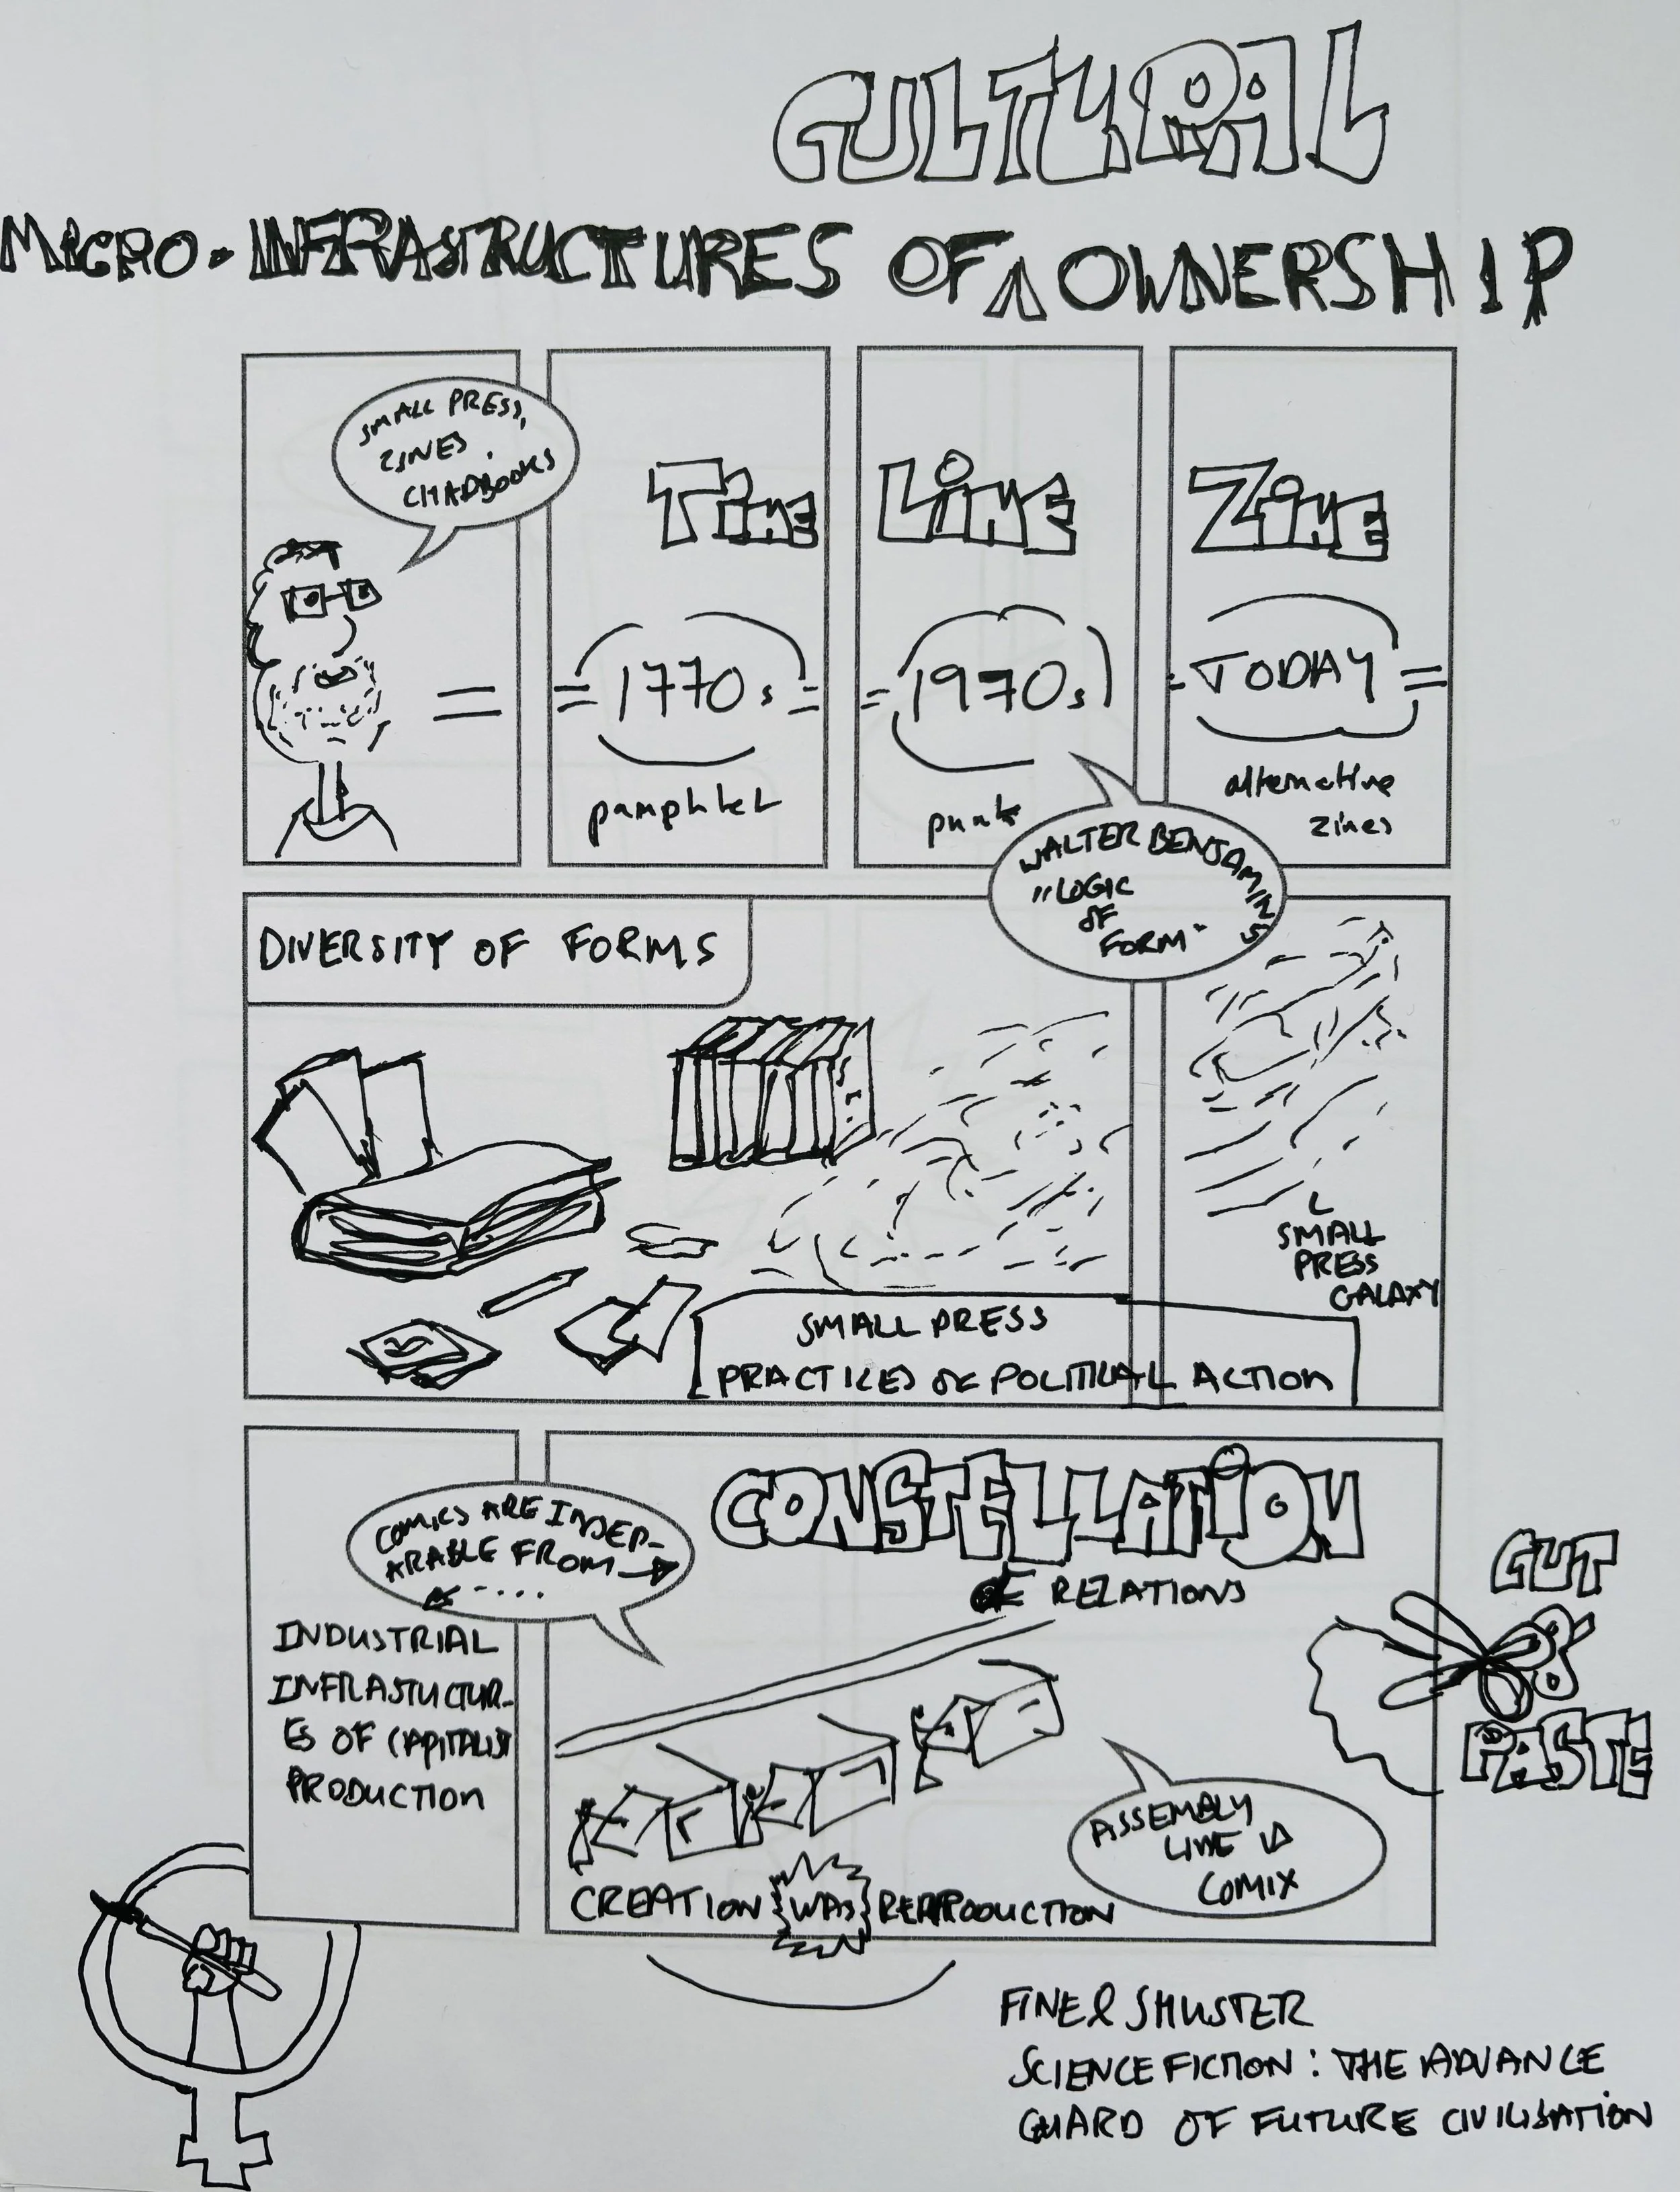 CULTURAL
MICRO-INFRASTRUCTURES OF OWNERSHIP
SMALL PRESS,
ZINES,
CHAPBOOKS
=
TIME
= 1770s =
pamphlet
LINE
= 1970s
punk
ZINE
- TODAY =
alternative
zines
WALTER BENJAMINS
"LOGIC
OF
FORM"
DIVERSITY OF FORMS
SMALL
PRESS
GALAXY
SMALL PRESS
PRACTICES OF POLITICAL ACTION
COMICS ARE INSEP-
ARABLE FROM
INDUSTRIAL
INFRASTUCTUR-
ES OF CAPITALIST
PRODUCTION
CONSTELLATION
OF RELATIONS
CUT
PASTE
ASSEMBLY
LINE
COMIX
CREATION WAS REPRODUCTION
FINE & SHUSTER
SCIENCE FICTION : THE ADVANCE
GUARD OF FUTURE CIVILISATION